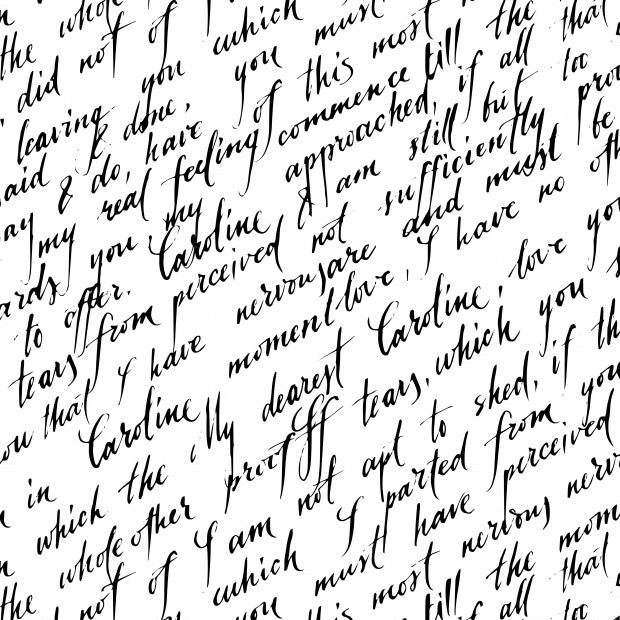 the whole
did not of
leaving you which
said & done, you must
ay & do, have of this most
my real feeling commence till the that
ards you my approached, if all
to offer. Caroline & am still but too
tears from perceived not sufficiently prov
ou that I have nervous are and must be
n in Caroline moment love, I have no oth
n which the My dearest Caroline, love yo
the whole other proof of tears, which you s
not of I am not apt to shed, if th
which I parted from you
you must have perceived
this most nervous nerv
till the mom
all that